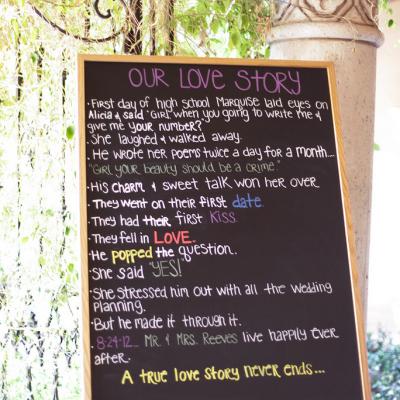 OUR LOVE STORY
• First day of high school Marquise laid eyes on
Alicia & said "Girl when you going to write me &
give me your number?
• She laughed & walked away.
• He wrote her poems twice a day for a month...
"Girl your beauty should be a crime."
• His charm & sweet talk won her over
• They went on their first date.
• They had their first Kiss.
• They fell in LOVE.
• He popped the question.
• She said "YES!"
• She stressed him out with all the wedding
planning.
• But he made it through it.
• 8-24-12... Mr. & Mrs. Reeves live happily ever
after.
A true love story never ends...